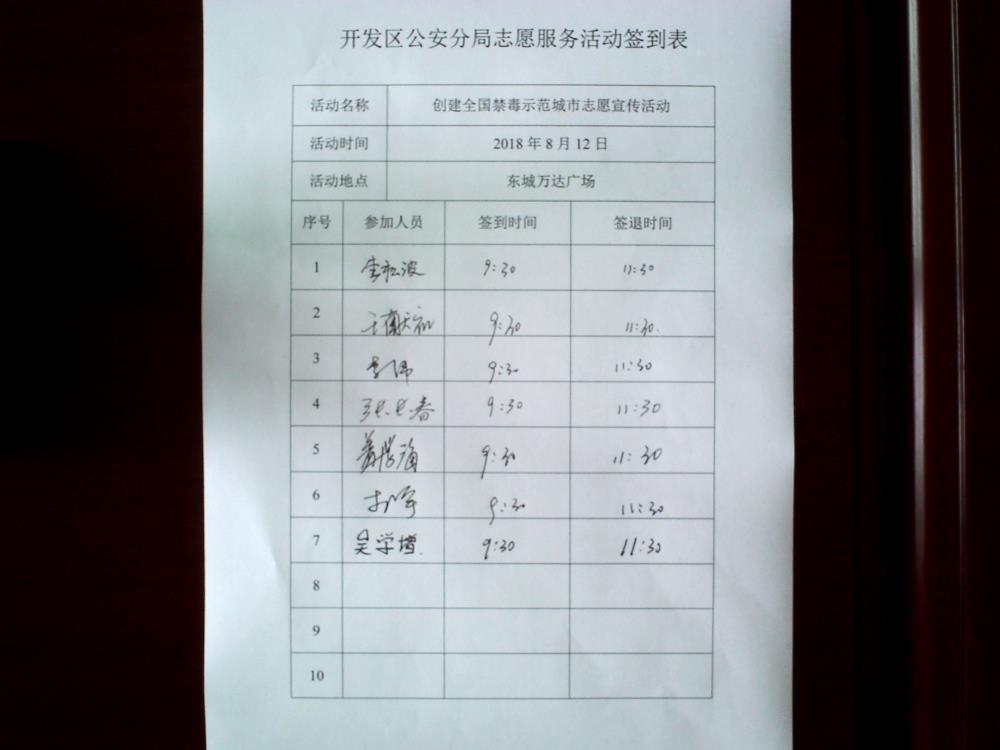 开发区公安分局志愿服务活动签到表
活动名称 创建全国禁毒示范城市志愿宣传活动
活动时间 2018年8月12日
活动地点 东城万达广场
序号 参加人员 签到时间 签退时间
1 李松波 9:30 11:30
2 9:30 11:30.
3 李伟 9:30 11:30
4 张春 9:30 11:30
5 9:30 11:30
6 9:30 11:30
7 吴学增. 9:30 11:30
8
9
10